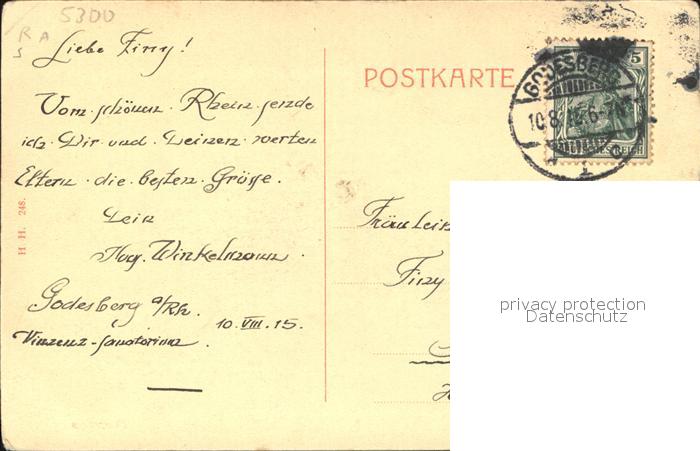 5300
R A
S
Liebe Finy!
Vom schönen Rhein sende
ich Dir und Deinen werten
Eltern die besten Grüße.
Dein
Aug. Winkelmann.
Godesberg a/Rh.
10. VIII. 15.
Vinzenz-Sanatorium.
H H. 248.
POSTKARTE
GODESBERG
10.8.15.6-
5
REICH
Fräulein
Finy
privacy protection
Datenschutz